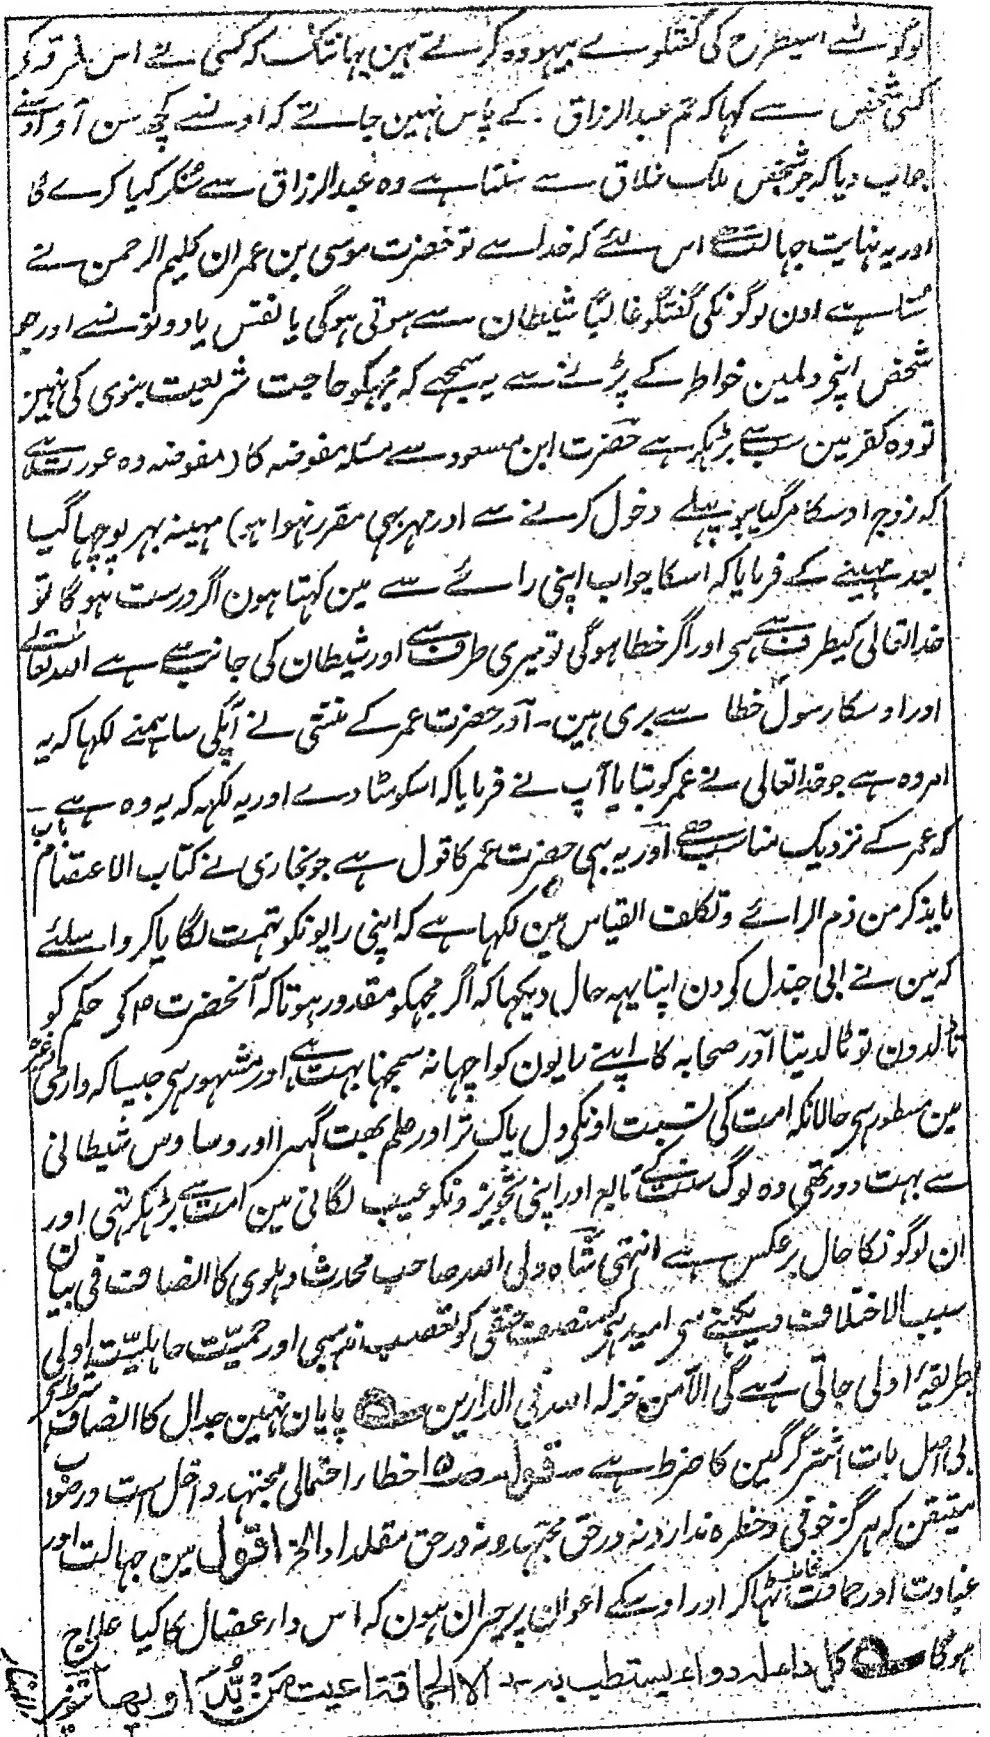 لوگونسے اسیطرح کی گفتگوے بیہودہ کرتے ہین یہانتک کہ کسی نے اس فرقہ کے
کسی شخص سے کہا کہ تم عبدالرزاق کے پاس نہین جاتے کہ اونسے کچھ سن آو اوسنے
جواب دیا کہ جو شخص ملک خلاق سے سنتا ہے وہ عبدالرزاق سے سنکر کیا کرے گا
اور یہ نہایت جہالت ہے اس لئے کہ خدا سے تو حضرت موسی بن عمران کلیم الرحمن نے
سنا ہے اون لوگونکی گفتگو غالبًا شیطان سے ہوتی ہوگی یا نفس یا دونونسے اور جو
شخص اپنے دلمین خواطر کے پڑنے سے یہ سمجھے کہ مجہکو حاجت شریعت نبوی کی نہین
تو وہ کفر مین سب سے بڑہکر ہے حضرت ابن مسعود سے مسئلہ مفوضہ کا (مفوضہ وہ عورت ہے
کہ زوج اوسکا مرگیا ہو پہلے دخول کرنے سے اور مہر بہی مقرر نہوا ہو) مہینہ بہر پوچہا گیا
بعد مہینے کے فرمایا کہ اسکا جواب اپنی رائے سے مین کہتا ہون اگر درست ہوگا تو
خدا تعالی کیطرف سے ہی اور اگر خطا ہوگی تو میری طرف سے اور شیطان کی جانب سے ہے اللہ تعالے
اور اوسکا رسول خطا سے بری ہین ۔ اور حضرت عمر کے منشی نے آپکی سامہنے لکہا کہ یہ
امر وہ ہے جو خدا تعالی نے عمر کو بتایا آپ نے فرمایا کہ اسکو مٹا دے اور یہ لکہہ کہ یہ وہ ہے ۔
کہ عمر کے نزدیک مناسب ہے اور یہ بہی حضرت عمر کا قول ہے جو بخاری نے کتاب الاعتصام باب
ما یذکر من ذم الرائے وتکلف القیاس مین لکہا ہے کہ اپنی رایونکو تہمت لگایا کرو اسلئے
کہ مین نے ابی جندل کے دن اپنا یہہ حال دیکہا کہ اگر مجہکو مقدور ہوتا کہ آنحضرت ؐ کی حکم کو
ٹالدون تو ٹالدیتا اور صحابہ کا اپنے رایون کو اچہا نہ سمجہنا بہت ہے اور مشہور ہی جیسا کہ دارمی وغیرہ
مین مسطور ہی حالانکہ امت کی نسبت اونکی دل پاک تر اور علم بہت گہرا اور وساوس شیطانی
سے بہت دور تھی وہ لوگ سنت کے تابع اور اپنی تجویزونکو عیب لگانی مین امت سے بڑہکر تہی اور
ان لوگونکا حال برعکس ہے انتہی شاہ ولی اللہ صاحب محدث دہلوی کا انصاف فی بیان
سبب الاختلاف دیکہنے سی امید ہی کہ منصف حنفی کو تعصب مذہبی اور حمیت جاہلیت اولی
بطریقۂ اولی جاتی رہے گی الا من خزلہ اللہ فی الدارین پایان نہین جدال کا انصاف شرط ہی
بی اصل بات اشتر گرگین کا ضرط ہے ۔ قولہ ص ۵ اخطار احتمالی مجتہد داخل است در صواب
متیقن کہ ہرگز خوفی وخطرہ ندارد نہ در حق مجتہد و نہ در حق مقلد او الخ اقول مین جہالت اور
غباوت اور حماقت ٹہاکر اور اوسکے اعوان پر حیران ہون کہ اس داء عضال کا کیا علاج
ہوگا کل داء لہ دواء یستطب بہ الا الحماقۃ اعیت من یداویہا